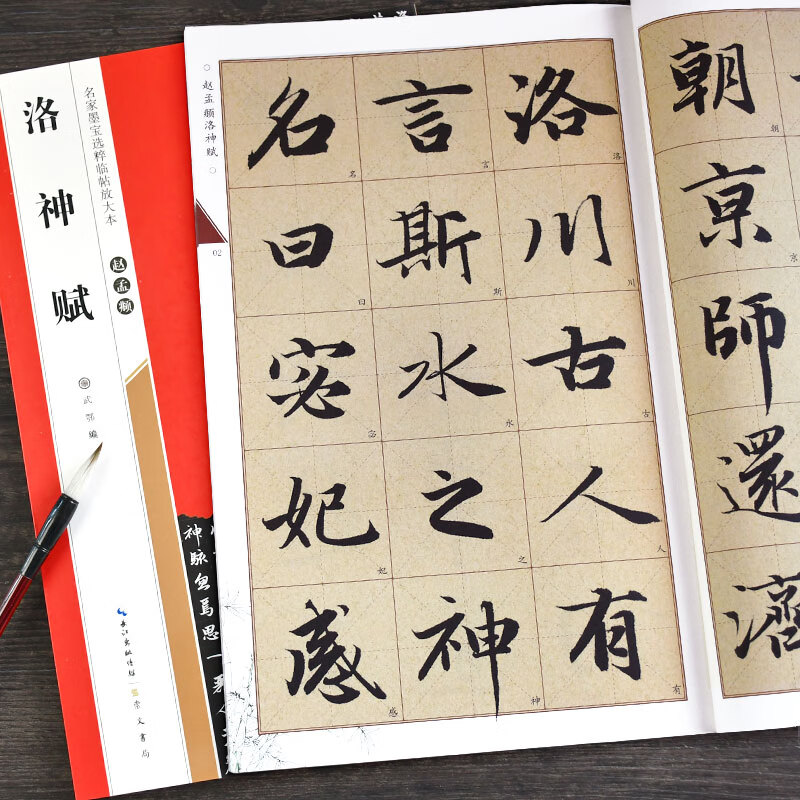 洛神赋
名家墨宝选粹临帖放大本
赵孟頫
武鄂 编
长江出版传媒 崇文书局
赵孟頫洛神赋
02
朝京師還濟
朝
京
洛川古人有
洛
川
古
人
有
言斯水之神
言
斯
水
之
神
名曰宓妃感
名
曰
宓
妃
感